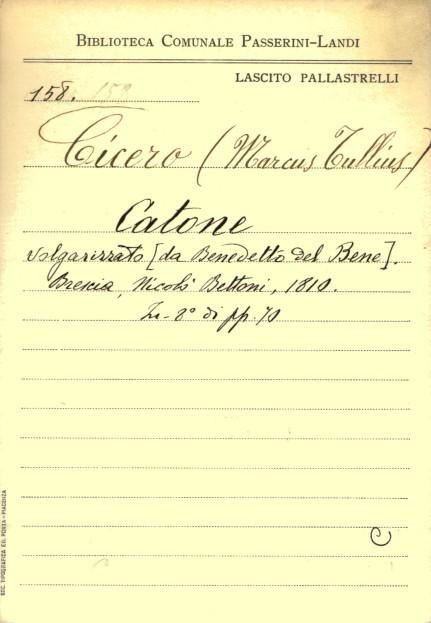 BIBLIOTECA COMUNALE PASSERINI-LANDI
LASCITO PALLASTRELLI
158. 159
Cicero (Marcus Tullius)
Catone
volgarizzato [da Benedetto del Bene].
Brescia, Nicolò Bettoni, 1810.
In-8° di pp. 70
C
SOC. TIPOGRAFICA ED. PORTA - PIACENZA